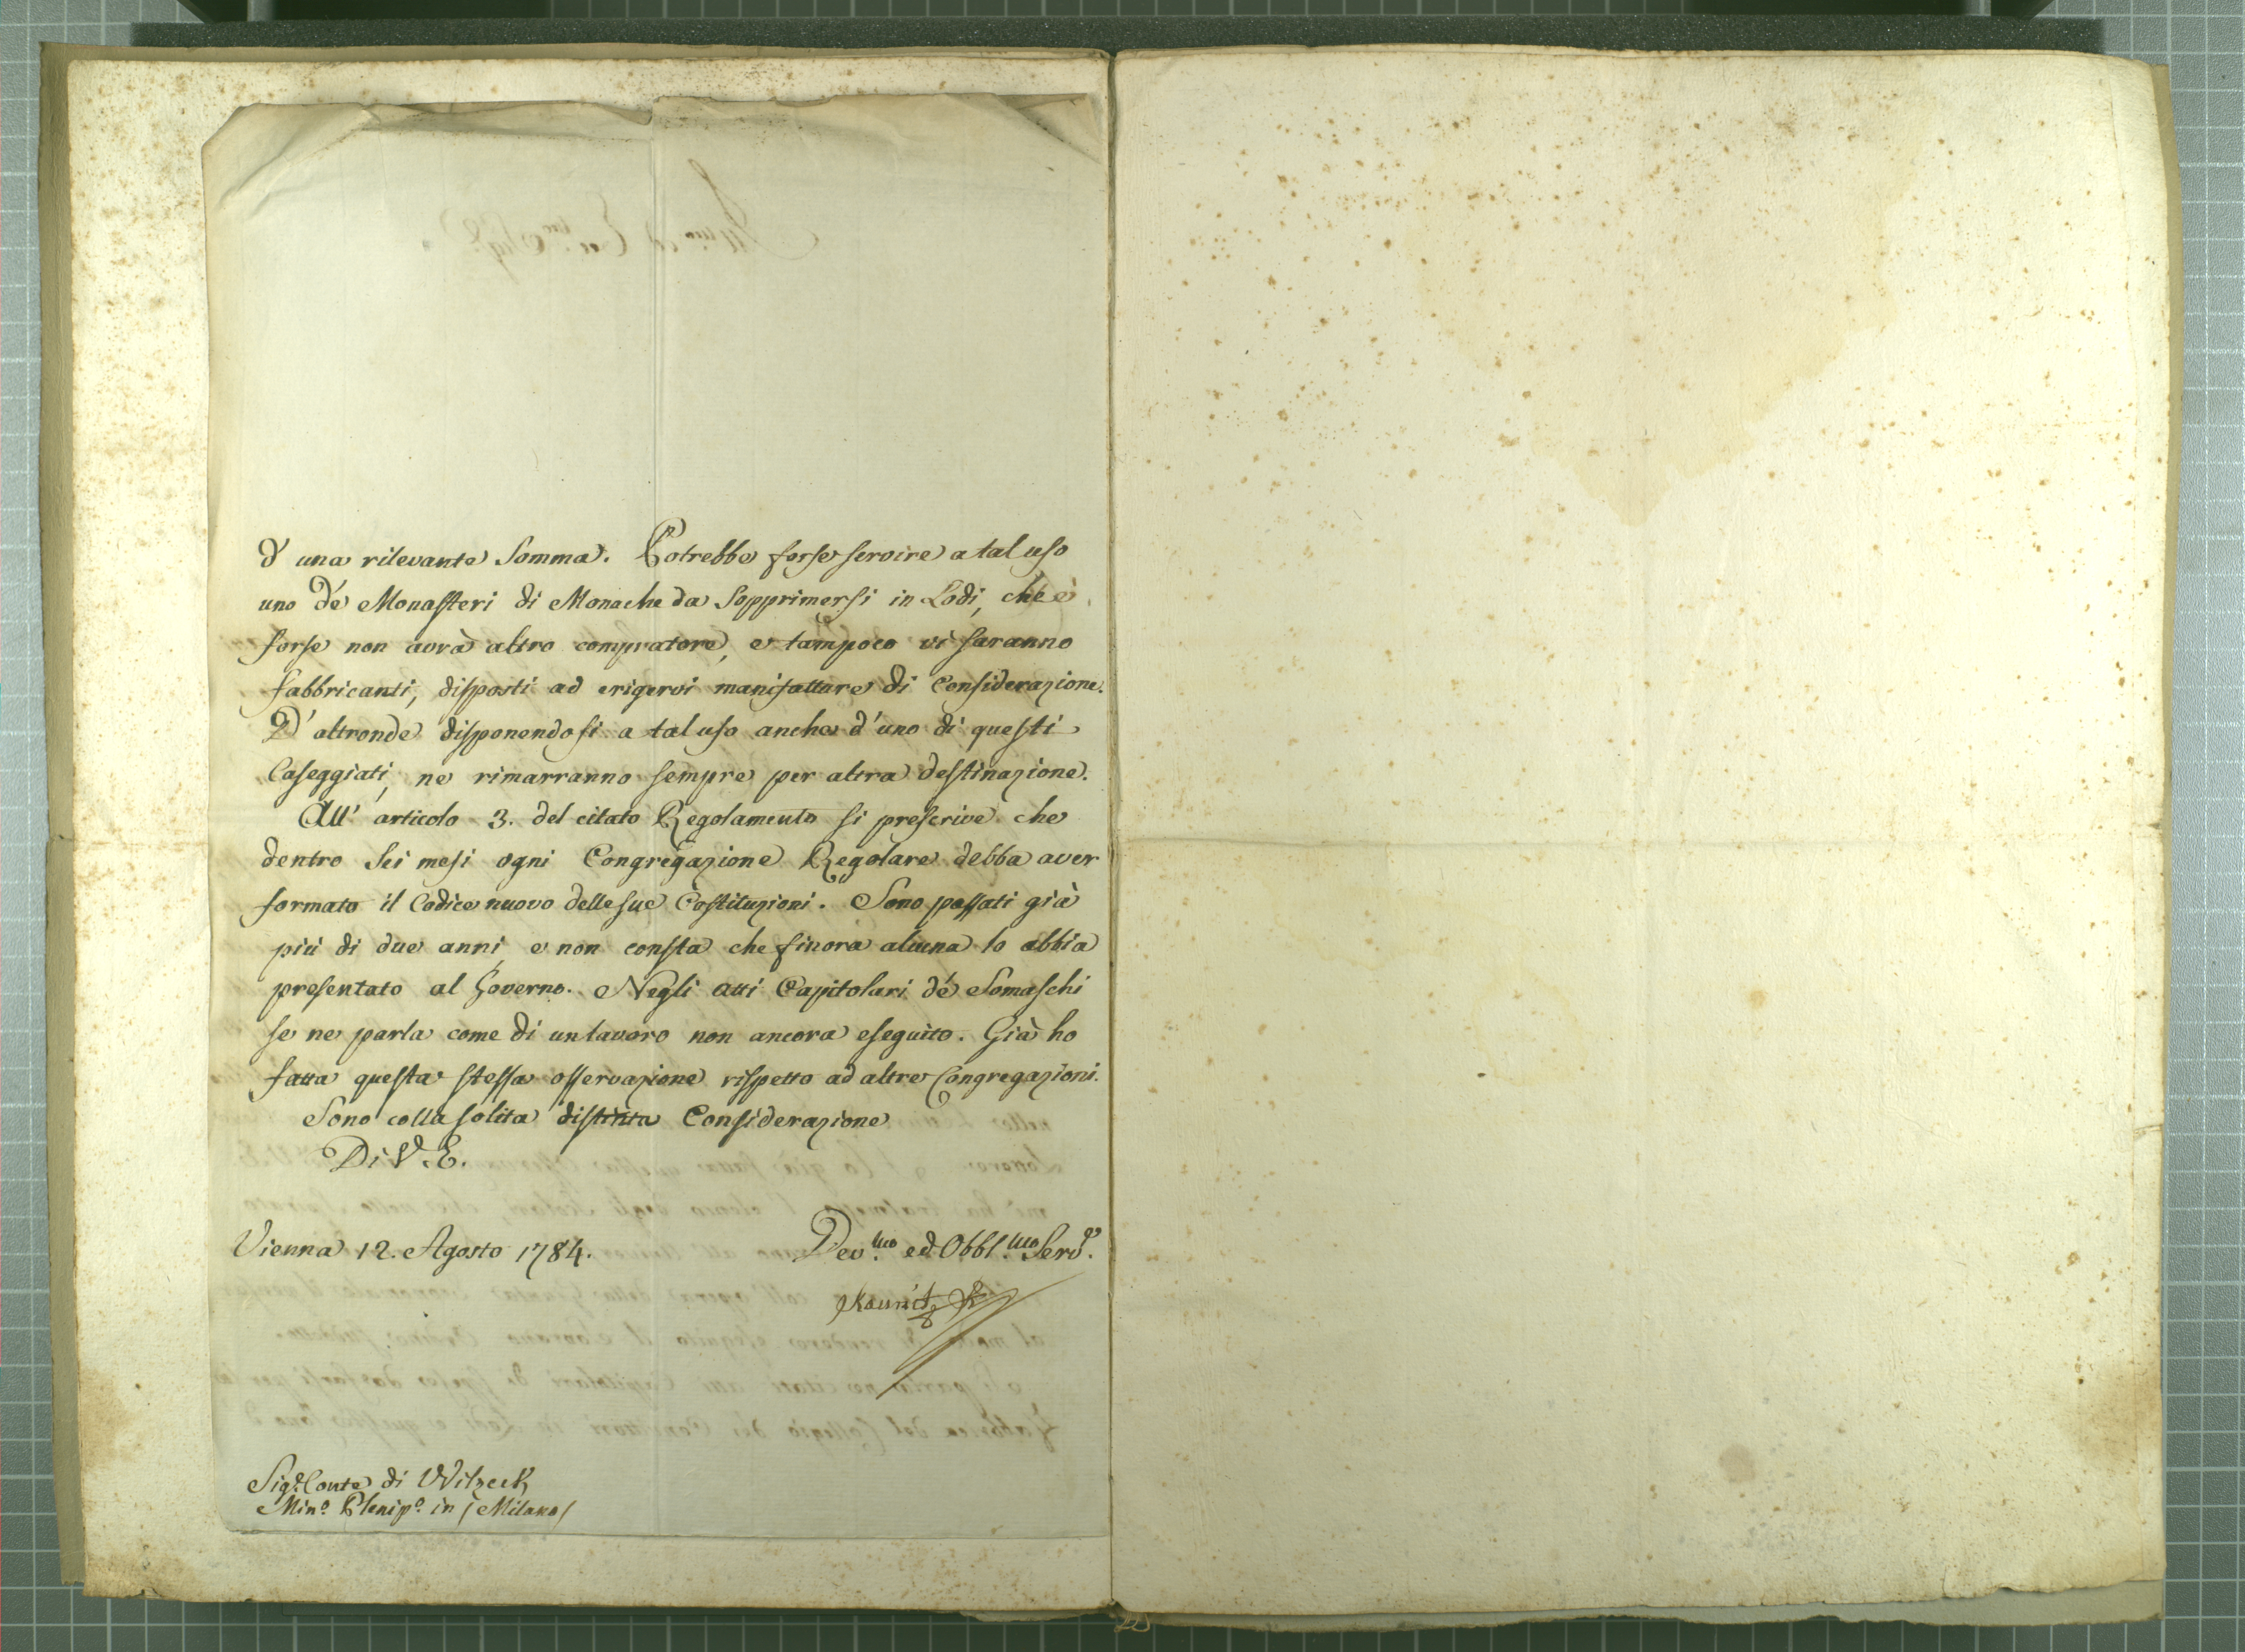 d' una rilevante Somma. Potrebbe forse servire a tal uso
uno de' Monasteri di Monache da Sopprimersi in Lodi, che
forse non avrà altro compratore, e tampoco vi saranno
fabbricanti, disposti ad erigervi manifatture di Considerazione.
D' altronde disponendosi a tal uso anche d' uno di questi
Caseggiati, ne rimarranno sempre per altra destinazione.
All' articolo 3. del citato Regolamento si prescrive che
dentro Sei mesi ogni Congregazione Regolare debba aver
formato il Codice nuovo delle sue Costituzioni. Sono passati già
più di due anni, e non consta che finora alcuna lo abbia
presentato al Governo. Negli atti Capitolari de' Somaschi
se ne parla come di un lavoro non ancora eseguito. Già ho
fatta questa stessa osservazione rispetto ad altre Congregazioni.
Sono colla solita distinta Considerazione
Di V. E.
Vienna 12. Agosto 1784.
Dev.mo ed Obbl.mo Serv.e
Kaunitz R
Sig.r Conte di Wilzeck
Min.o Plenip.o in /Milano/